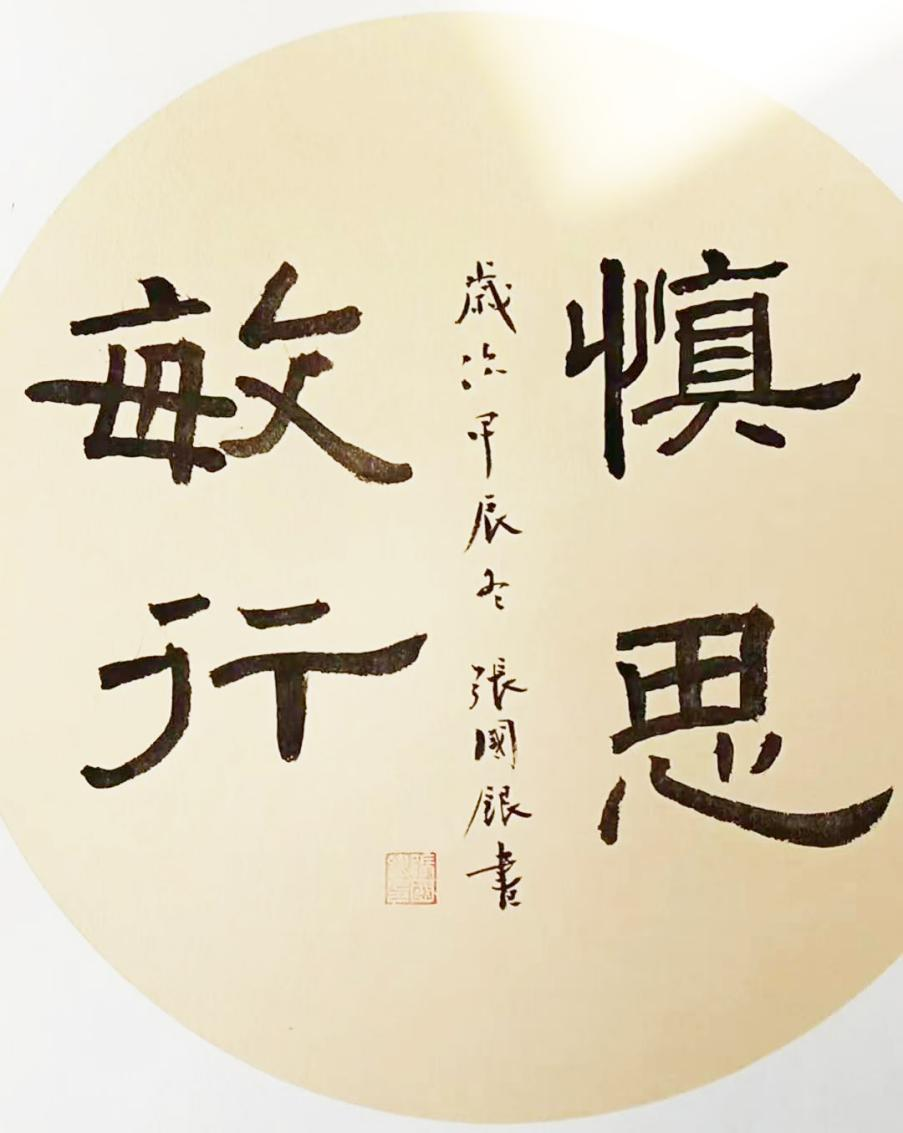 慎思
歲次甲辰冬 張國銀書
敏行